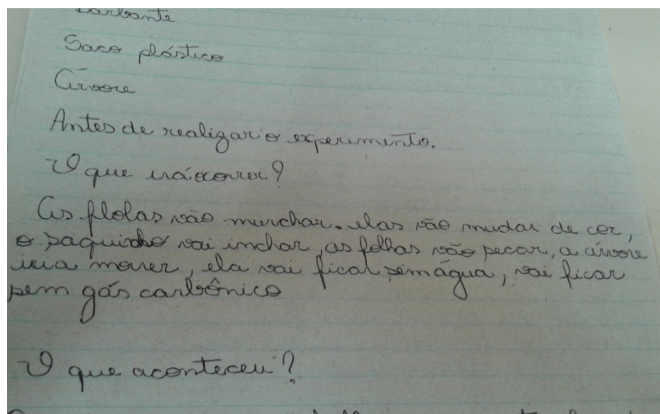 Barbante
Saco plástico
Árvore
Antes de realizar o experimento.
O que irá ocorrer?
As flolas vão murchar. elas vão mudar de cor,
o saquinho vai inchar, as folhas vão secar, a árvore
iria morrer, ela vai fical sem água, vai ficar
sem gás carbônico
O que aconteceu?